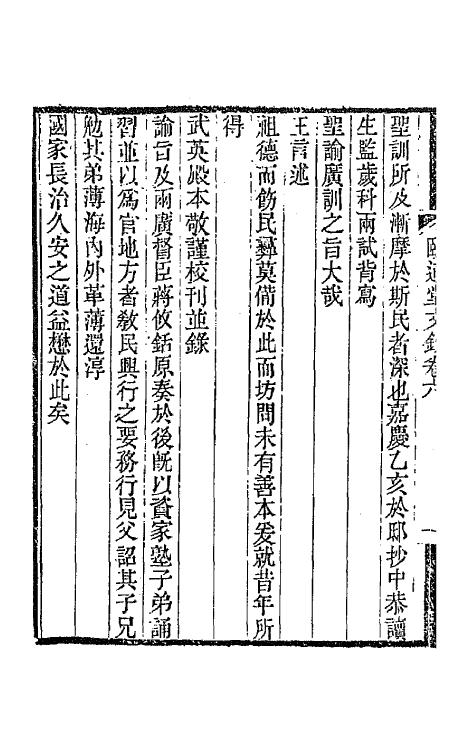 聖訓所及漸摩於斯民者深也嘉慶乙亥於邸抄中恭讀
生監歲科兩試背寫
聖諭廣訓之旨大哉
王言述
祖德而飭民彝莫備於此而坊間未有善本爰就昔年所
得
武英殿本敬謹校刊並錄
諭旨及兩廣督臣蔣攸銛原奏於後旣以資家塾子弟誦
習並以爲官地方者敎民興行之要務行見父詔其子兄
勉其弟薄海內外革薄還淳
國家長治久安之道益懋於此矣